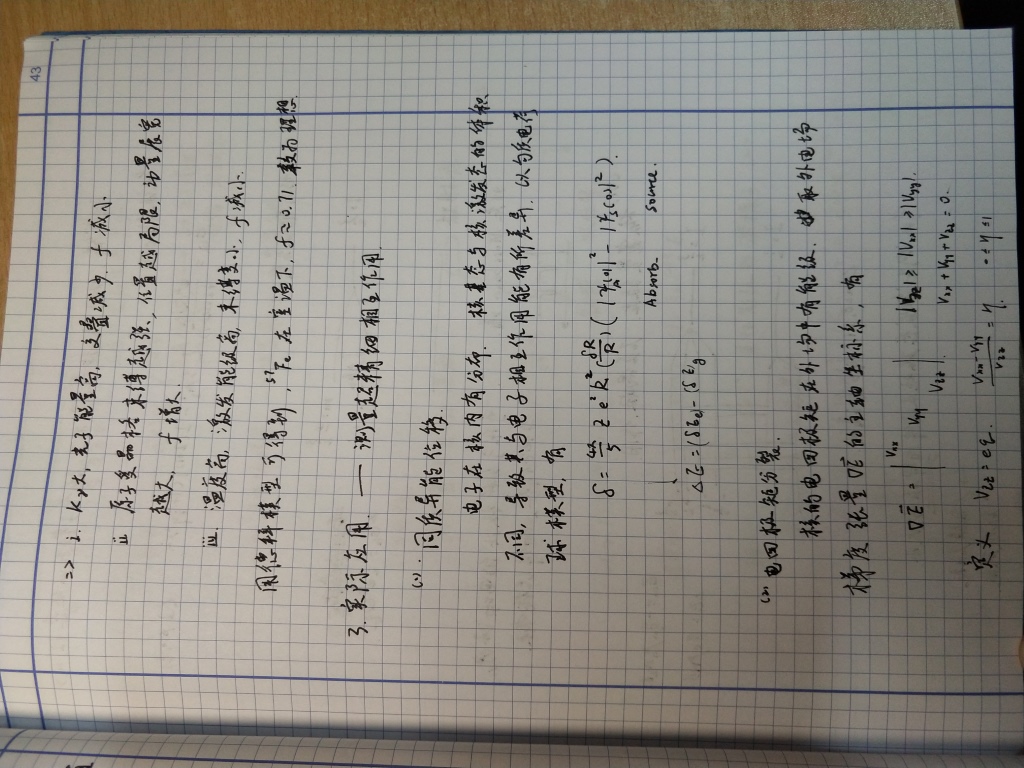 43
=> i. Kγ大, 光子能量高, 交叠减少. f 减小
ii 原子受晶格束缚越强, 位置越局限, 动量展宽
越大, f 增大.
iii. 温度高, 激发能级高, 束缚变小, f 减小.
用德拜模型可得到, ⁵⁷Fe 在室温下, f ≈ 0.71. 较为理想.
3. 实际应用. —— 测量超精细相互作用.
(1). 同质异能位移.
电子在核内有分布. 核基态与核激发态的体积
不同, 导致其与电子相互作用能有所差异. 以匀质电荷
球模型, 有
δ = 4π/5 Z e² R² (δR/R) ( |ψ_A(0)|² − |ψ_S(0)|² ).
Absorb. Source.
ΔE = (δE)e − (δE)g
(2) 电四极矩分裂.
核的电四极矩在外场中有能级. 取外电场
梯度张量 ∇E⃗ 的主轴坐标系, 有
∇E⃗ = | Vxx Vyy Vzz | |Vzz| ≥ |Vxx| ≥ |Vyy|.
Vxx + Vyy + Vzz = 0.
定义 Vzz = eq. (Vxx − Vyy)/Vzz = η. 0 ≤ η ≤ 1